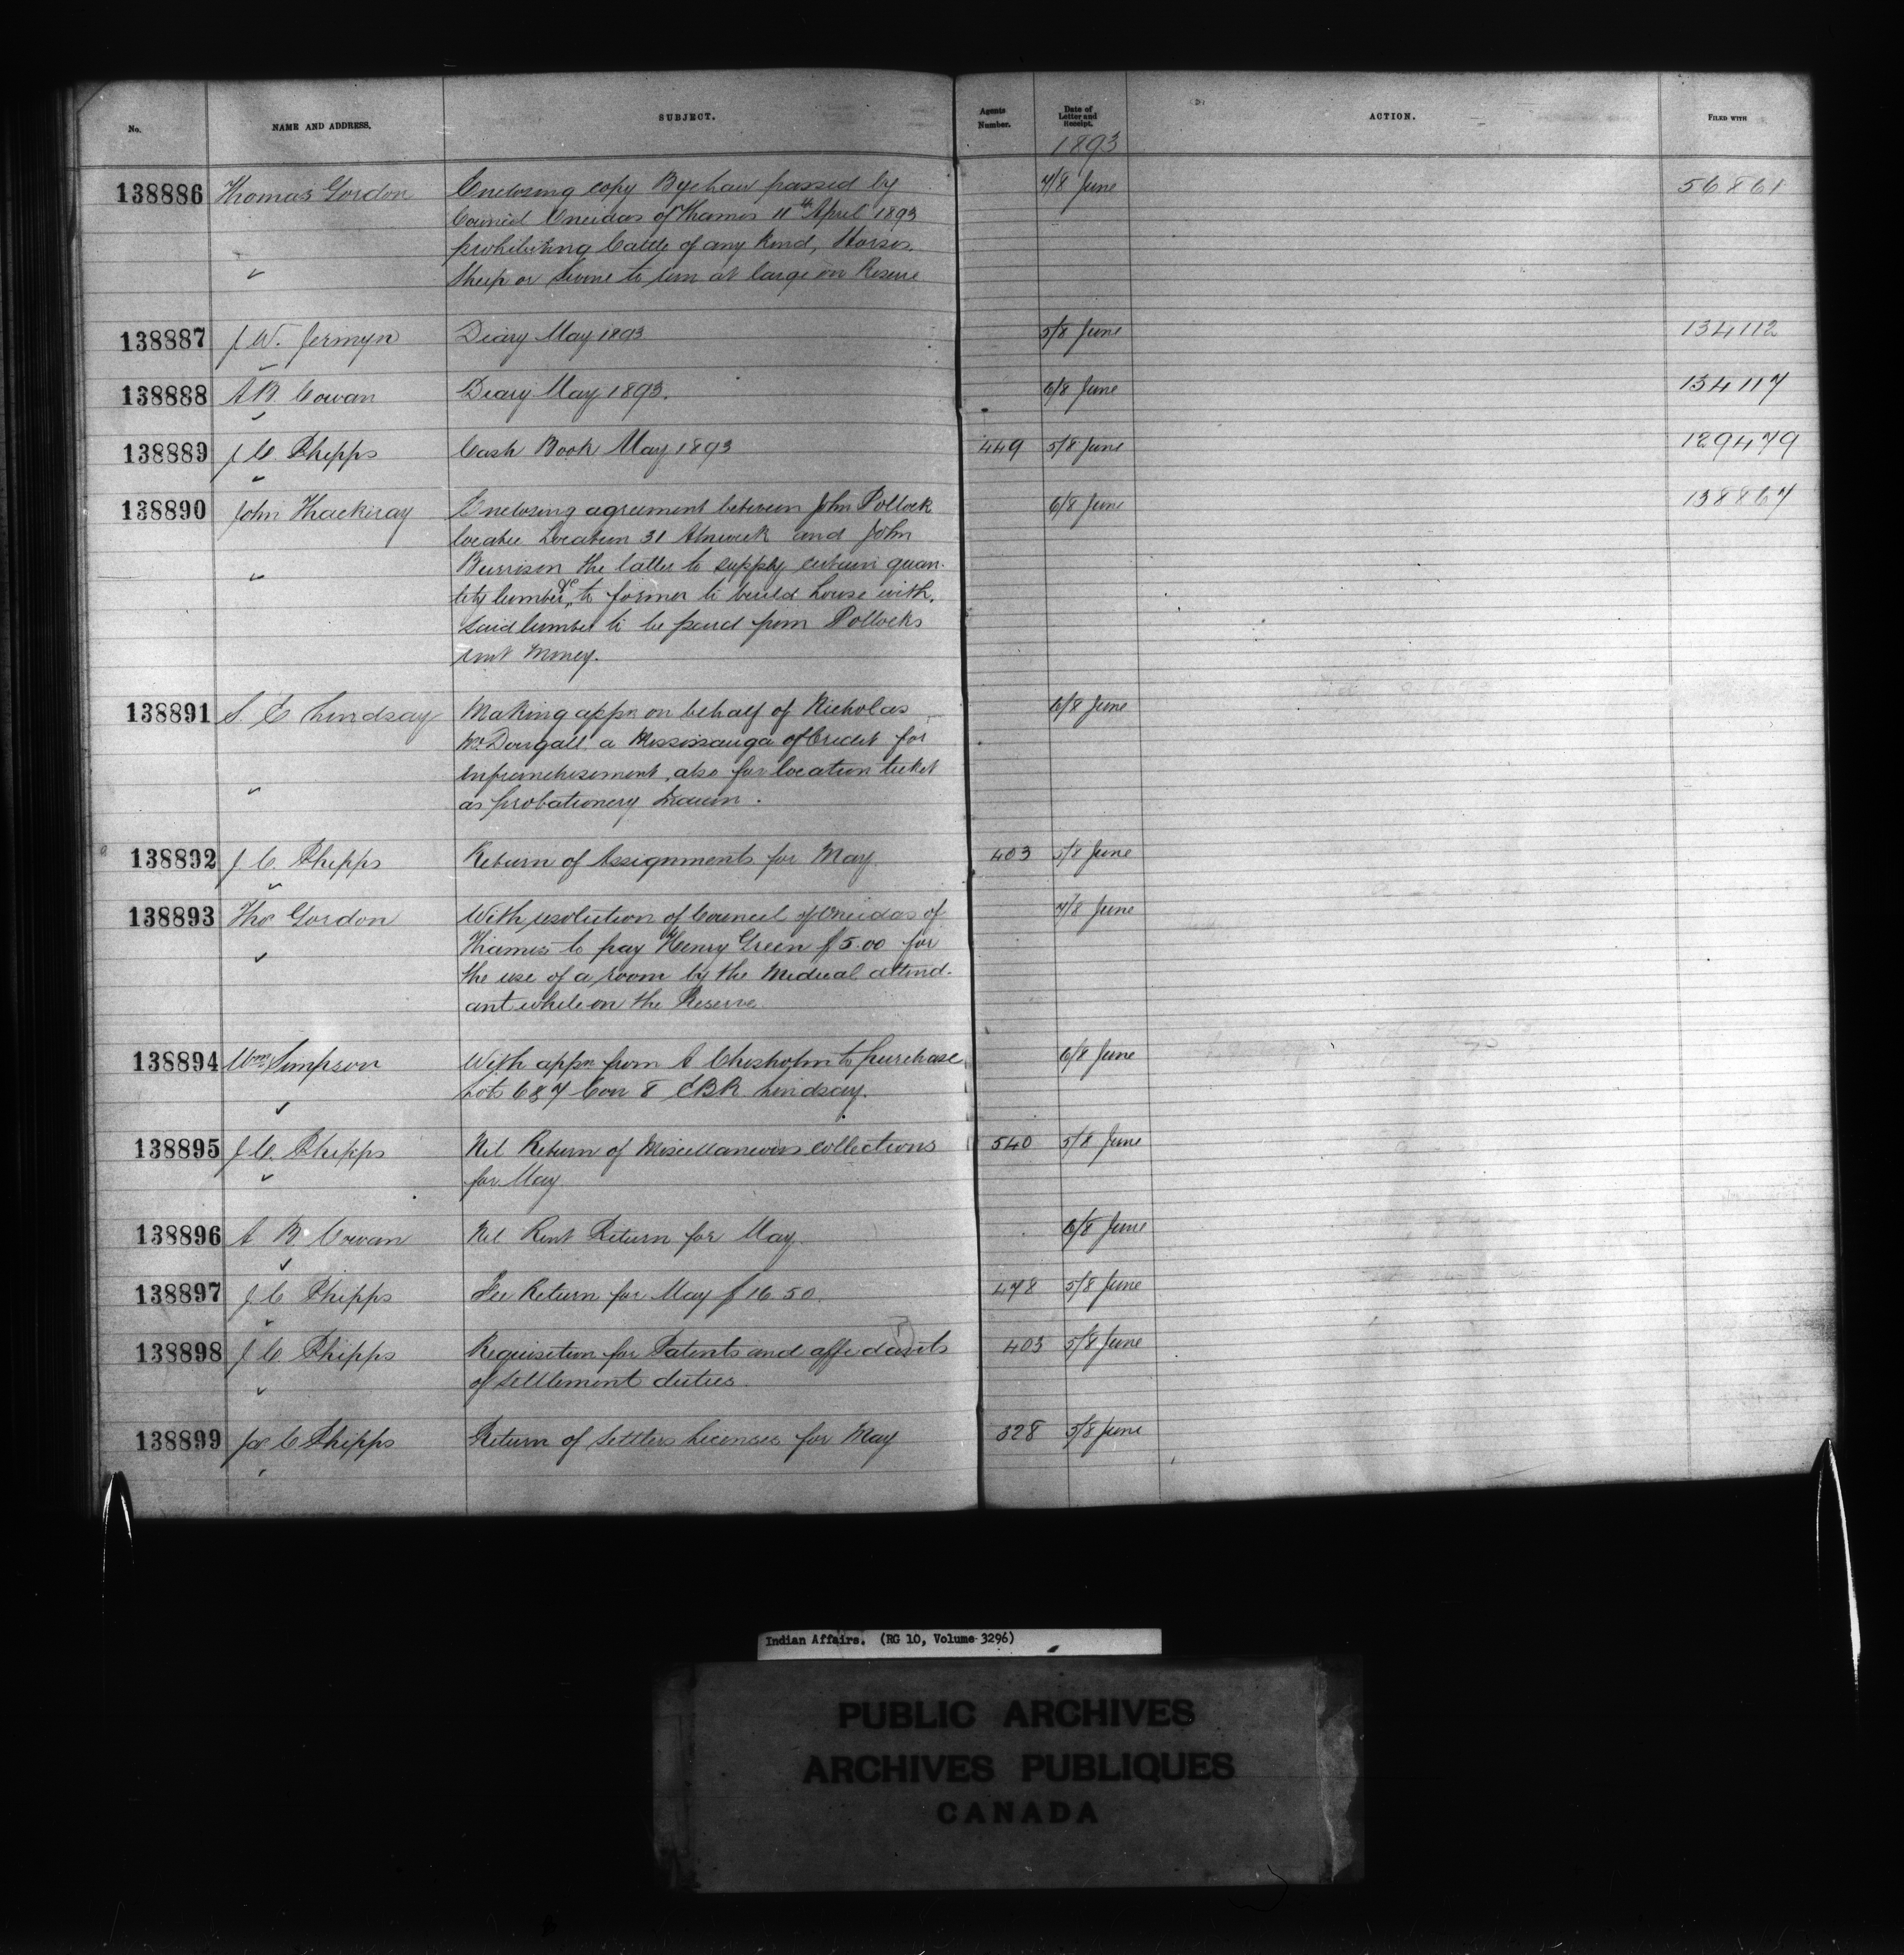 No. NAME AND ADDRESS. SUBJECT. Agents Number. Date of Letter and Receipt. ACTION. FILED WITH
1893
138886 Thomas Gordon Enclosing copy Bye Law passed by 7/8 June 56861
Council Oneidas of Thames 11th April 1893
prohibiting Cattle of any Kind, Horses
Sheep or Swine to run at large on Reserve
138887 J. W. Jermyn Diary May 1893 5/8 June 134112
138888 A B Cowan Diary May 1893. 6/8 June 134117
138889 J. C. Phipps Cash Book May 1893 449 5/8 June 129479
138890 John Thackeray Enclosing agreement between John Pollock 6/8 June 138867
locatee Location 31 Alnwick and John
Burrison the latter to supply certain quan-
tity lumber &c to former to build house with,
said lumber to be paid from Pollocks
rent money.
138891 S. C Lindsay Making appn on behalf of Nicholas 6/8 June
McDougall a Mississauga of Credit for
enfranchisement, also for location ticket
as probationery
138892 J. C. Phipps Return of Assignments for May 403 5/8 June
138893 Thos Gordon With resolution of Council of Oneidas of 7/8 June
Thames to pay Henry Green $5.00 for
the use of a room by the Medical attend-
ant while on the Reserve
138894 Wm Simpson With appn from A Chisholm to purchase 6/8 June
Lots 6 & 7 Con 8 EBR Lindsay.
138895 J. C. Phipps Nil Return of Miscellaneous collections 540 5/8 June
for May
138896 A B. Cowan Nil Rent Return for May 6/8 June
138897 J C Phipps Fee Return for May $16 50. 478 5/8 June
138898 J. C. Phipps Requisition for Patents and affidavits 403 5/8 June
of settlement duties.
138899 Jas C Phipps Return of Settlers Licenses for May 328 5/8 June
Indian Affairs. (RG 10, Volume 3296)
PUBLIC ARCHIVES
ARCHIVES PUBLIQUES
CANADA